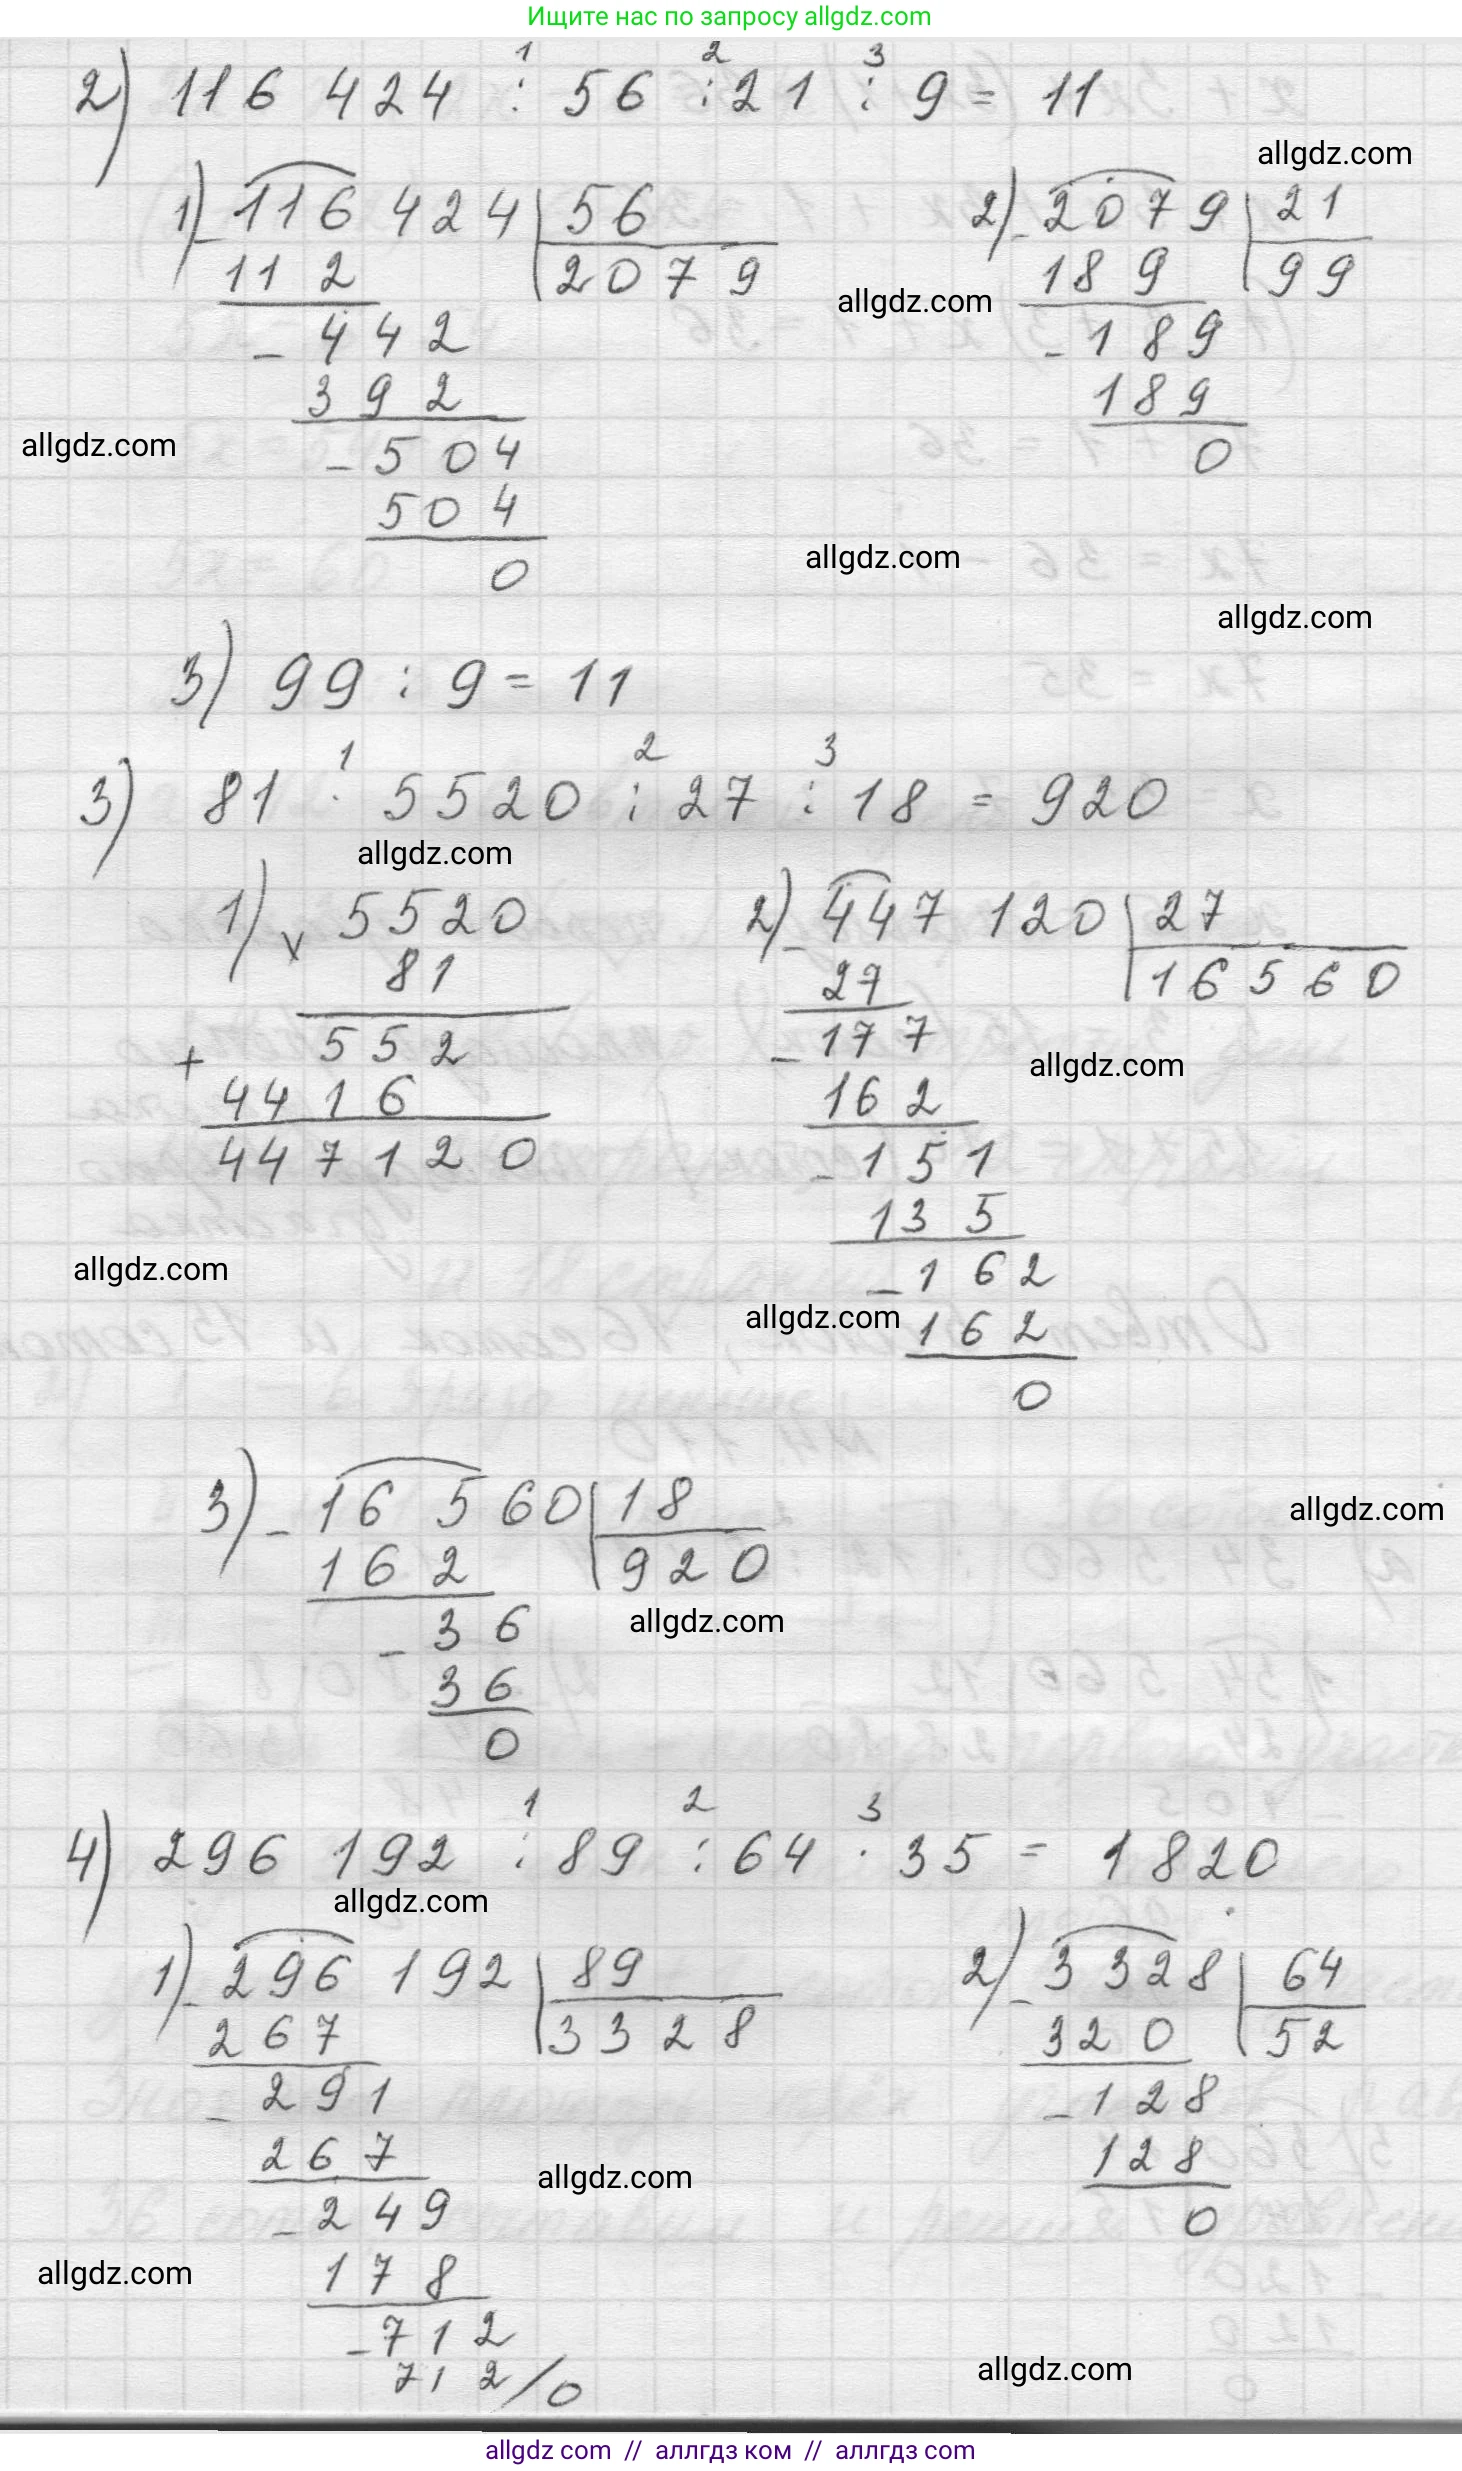 Ищите нас по запросу allgdz.com
1 2 3
2) 116 424 : 56 : 21 : 9 = 11
allgdz.com
1) 116 424 | 56 2) 2079 | 21
- 112 2079 - 189 99
allgdz.com
- 442 - 189
392 189
allgdz.com
- 504 0
504
0
allgdz.com
allgdz.com
3) 99 : 9 = 11
1 2 3
3) 81 · 5520 : 27 : 18 = 920
allgdz.com
1) x 5520 2) - 447 120 | 27
81 27 16560
+ 552 - 177
allgdz.com
4416 162
447120 - 151
135
allgdz.com
- 162
allgdz.com
162
0
3) - 16 560 | 18
allgdz.com
162 920
allgdz.com
- 36
36
0
1 2 3
4) 296 192 : 89 : 64 · 35 = 1820
allgdz.com
1) - 296 192 | 89 2) - 3328 | 64
267 3328 320 52
- 291 - 128
267 128
allgdz.com
- 249 0
allgdz.com
178
- 712
allgdz.com
712 / 0
allgdz com // аллгдз ком // аллгдз com